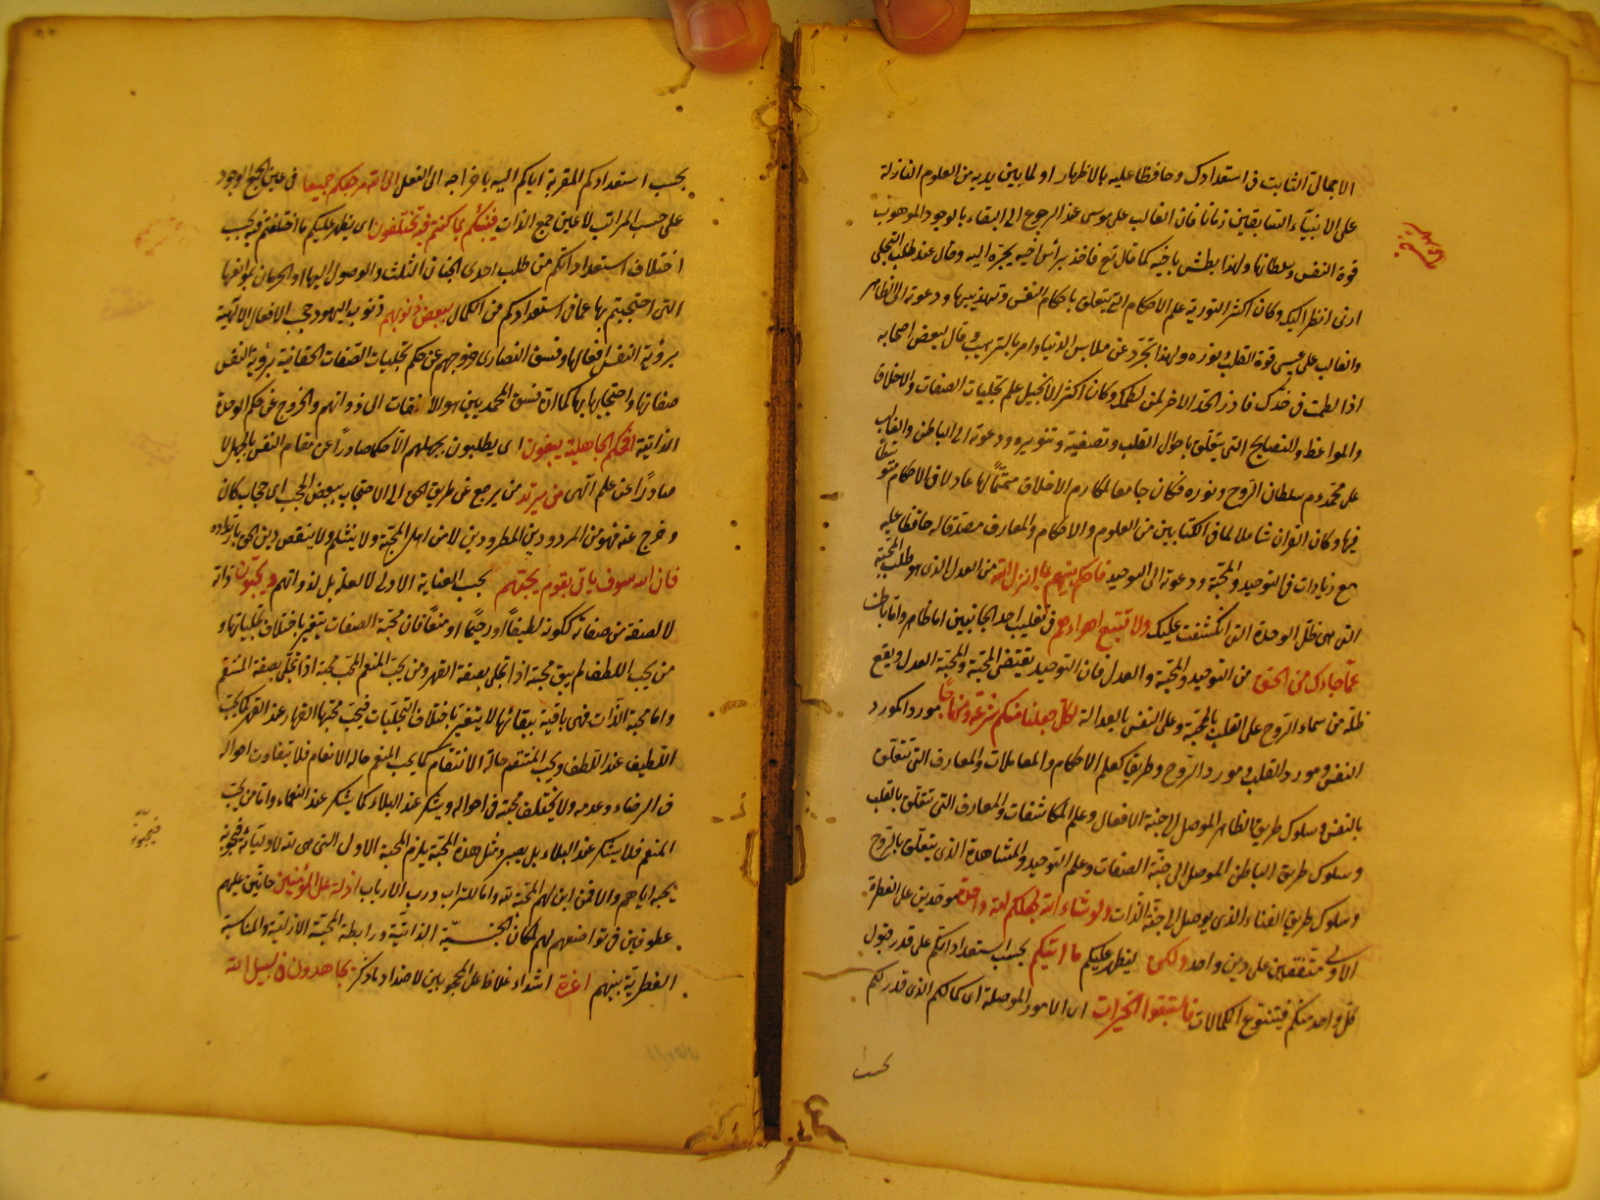 الاجمال الثابت فى استعدادك وحافظا عليه بالاظهار او لما بين يديه من العلوم النازلة
على الانبيآء السابقين زمانا فان الغالب على موسى عند الرجوع الى البقاء بالوجود الموهوب
قوة النفس وسلطانها ولهذا بطش باخيه كما قال تع فاخذ برأس اخيه يجره اليه وقال عند طلب التجلى
ارنى انظر اليك وكان اكثر التورية علم الاحكام التى يتعلق باحكام النفس وتهذيبها ودعوته الى الظاهر
والغالب على عيسى قوة القلب ونوره ولهذا تجرد عن ملابس الدنيا وامر بالترهب وقال لبعض اصحابه
اذا لطمت فى خدك فادر الخد الاخر لمن لطمك وكان اكثر الانجيل علم تجليات الصفات والاخلاق
والمواعظ والنصايح التى يتعلق باحوال القلب وتصفيته وتنويره ودعوته الى الباطن والغالب
على محمد عم سلطان الروح ونوره فكان جامعا لمكارم الاخلاق متمما لها عادلا فى الاحكام متوسطا
فيها وكان القران شاملا لما فى الكتابين من العلوم والاحكام والمعارف مصدقا له حافظا عليه
مع زيادات فى التوحيد والمحبة ودعوته الى التوحيد فاحكم بينهم بما انزل الله من العدل الذى هو ظل المحبة
التى هى ظل الوحدة التى انكشفت عليك ولا تتبع اهواءهم فى تغليب احد الجانبين اما الظاهر واما الباطن
عما جاءك من الحق من التوحيد والمحبة والعدل فان التوحيد يقتضى المحبة والمحبة العدل ويقع
ظله من سماء الروح على القلب بالمحبة وعلى النفس بالعدالة لكل جعلنا منكم شرعة ومنهاجا مورد كمورد
النفس ومورد القلب ومورد الروح وطريقا كعلم الاحكام والمعاملات والمعارف التى تتعلق
بالنفس وسلوك طريق الظاهر الموصل الى جنة الافعال وعلم المكاشفات والمعارف التى تتعلق بالقلب
وسلوك طريق الباطن الموصل الى جنة الصفات وعلم التوحيد والمشاهدة الذى يتعلق بالروح
وسلوك طريق الفناء الذى يوصل الى جنة الذات ولو شاء الله لجعلكم امة واحدة موحدين على الفطرة
الاولى متفقين على دين واحد ولكن ليظهر عليكم ما اتيكم بحسب استعداداتكم على قدر قبول
كل واحد منكم فيتنوع الكمالات فاستبقوا الخيرات اى الامور الموصلة الى كمالكم الذى قدر لكم
بحسب
بحسب استعدادكم المقربة اياكم اليه باخراجه الى الفعل الى الله مرجعكم جميعا فى عين جمع الوجود
على حسب المراتب لا عين جمع الذات فينبئكم بما كنتم فيه تختلفون اى يظهر عليكم ما اختلفتم فيه بحسب
اختلاف استعداداتكم من طلب احدى الجنان الثلث والوصول اليها او الحرمان بموانعها
التى احتجبتم بها عما فى استعدادكم من الكمال ببعض ذنوبهم ذنوب اليهود حجب الافعال الالهية
برؤية النفس افعالها وفسق النصارى خروجهم عن حكم تجليات الصفات الحقانية برؤية النفس
صفاتها واحتجابها بها كما ان فسق المحمديين هو الالتفات الى ذواتهم والخروج عن حكم الوحدة
الذاتية افحكم الجاهلية يبغون اى يطلبون بجهلهم الا حكما صادرا عن مقام النفس بالجهل لا
صادرا عن علم الهى من يرتد من يرجع عن طريق الحق الى الاحتجاب ببعض الحجب اى حجاب كان
وخرج عنه فهو من المردودين المطرودين لا من اهل المحبة ولا يتثلم ولا ينتقص دين الحق بارتداده
فان الله سوف ياتى بقوم يحبهم بحسب العناية الاولى لا لعلة بل لذواتهم ويحبون ذاته
لا لصفة من صفاته ككونه لطيفا او رحيما او منعما فان محبة الصفات يتغير باختلاف تجلياتها و
من يحب اللطف لم يبق محبة اذا تجلى بصفة القهر ومن يحب المنعم انمحت محبته اذا تجلى بصفة المنتقم
واما محبة الذات فهى باقية ببقائها لا يتغير باختلاف التجليات فيحب محبها القهار عند القهر كما يحب
اللطيف عند اللطف ويحب المنتقم حالة الانتقام كما يحب المنعم حالة الانعام فلا يتفاوت احواله
فى الرضاء وعدمه ولا يختلف محبة فى احواله ويشكر عند البلاء كما يشكر عند النعماء واما من يحب
المنعم فلا يشكر عند البلاء بل يصبر ومثل هذه المحبة يلزم المحبة الاولى التى هى لله لاوليائه فيحبونه
فيحبونه
يحبه اياهم والا فمن اين لهم المحبة لله وما للتراب ورب الارباب اذلة على المؤمنين حانين عليهم
عطوفين فى تواضعهم لهم لمكان الجنسية الذاتية ورابطة المحبة الازلية والمناسبة
الفطرية بينهم اعزة اشداء غلاظ على المحجوبين لاضداد ما ذكر يجاهدون فى سبيل الله